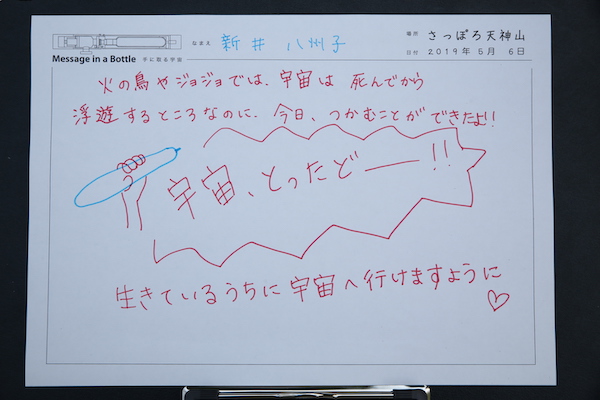 なまえ 新井 八州子
場所 さっぽろ天神山
Message in a Bottle 手に取る宇宙
日付 2019年 5月 6日
火の鳥やジョジョでは、宇宙は 死んでから
浮遊するところなのに、今日、つかむことが できたよ!!
宇宙、とったどー!!
生きているうちに 宇宙へ行けますように♡